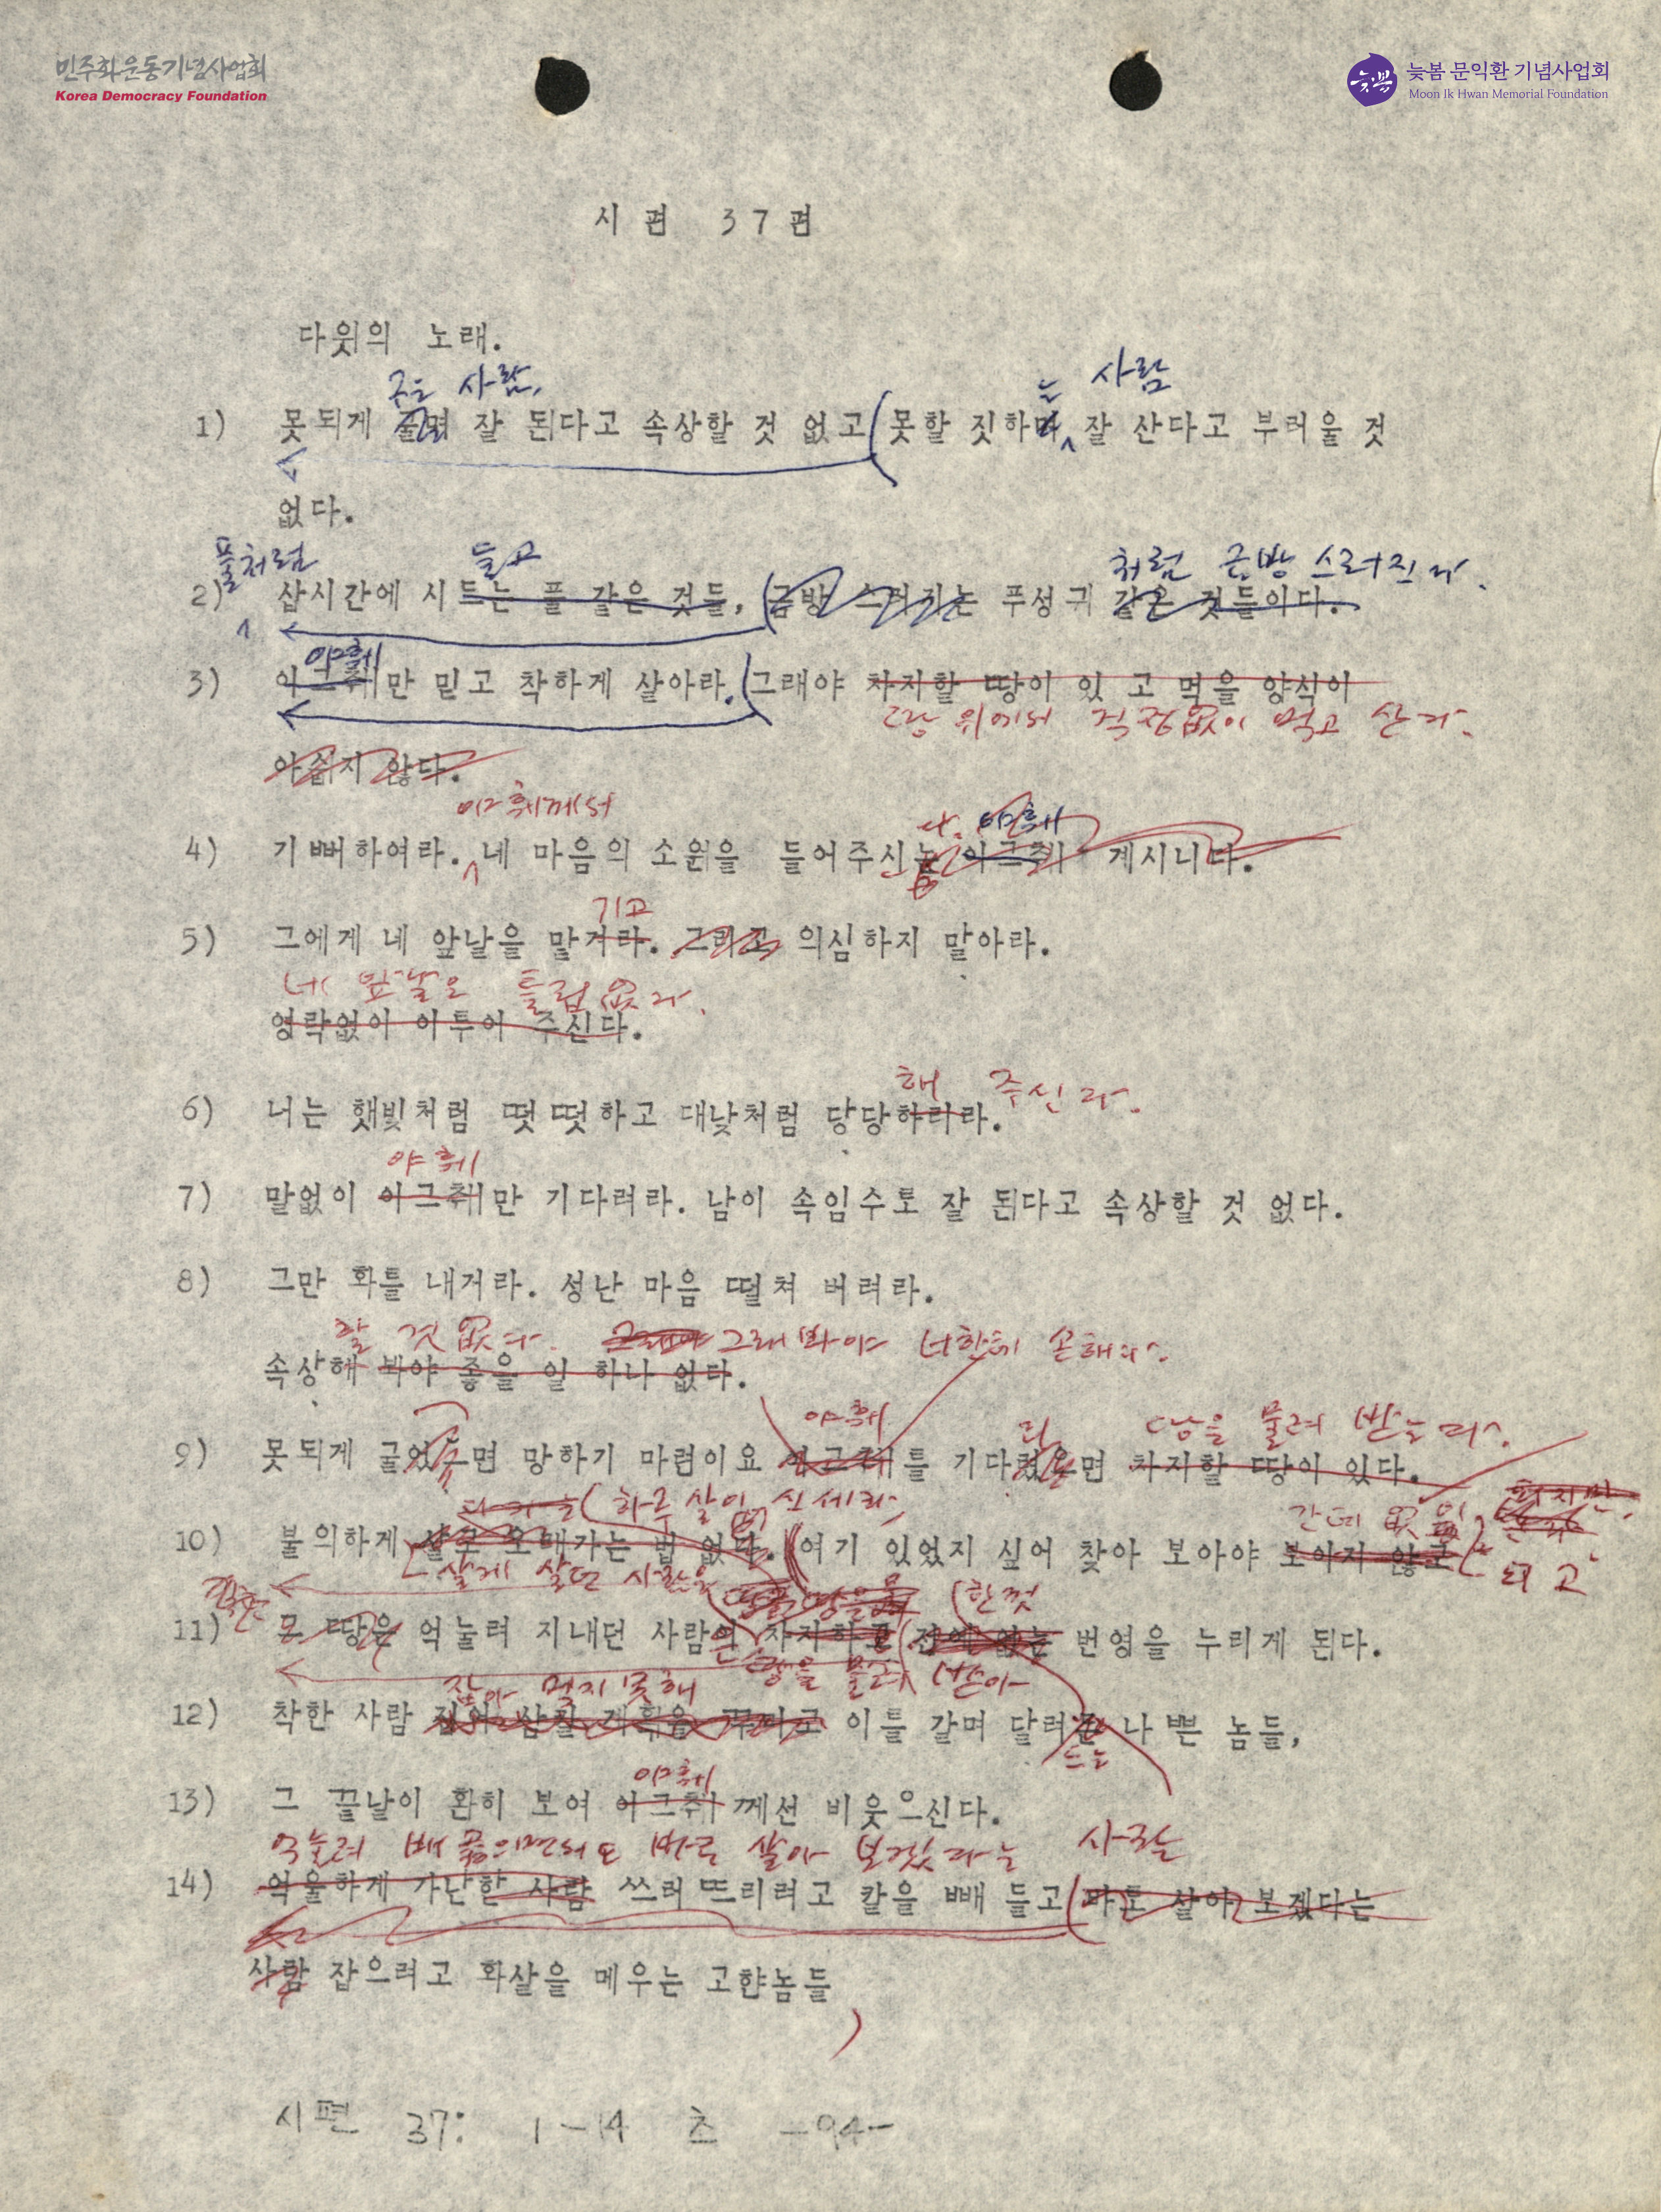 민주화운동기념사업회
Korea Democracy Foundation
늦봄 문익환 기념사업회
Moon Ik Hwan Memorial Foundation
시 편 37편
다윗의 노래.
구는 사람, 사람
1) 못되게 굴면 잘 된다고 속상할 것 없고 못할 짓하며 잘 산다고 부러울 것
없다.
풀처럼 들고 처럼 금방 스러진다.
2) 삽시간에 시드는 풀 같은 것들, 금방 스러지는 푸성귀 같은 것들이다.
야훼
3) 이그훼만 믿고 착하게 살아라. 그래야 차지할 땅이 있 고 먹을 양식이
땅 위에서 걱정없이 먹고 산다.
아쉽지 않다.
야훼께서
다. 야훼
4) 기뻐하여라. 네 마음의 소원을 들어주시는 게시니다.
기고
5) 그에게 네 앞날을 맡겨라. 그리고 의심하지 말아라.
네 앞날은 틀림없다.
영락없이 이루어 주신다.
해 주신다.
6) 너는 햇빛처럼 떳떳하고 대낮처럼 당당하리라.
야훼
7) 말없이 만 기다려라. 남이 속임수로 잘 된다고 속상할 것 없다.
8) 그만 화를 내거라. 성난 마음 떨쳐 버려라.
할 것 없다. 그래봐야 너한테 손해다.
속상해 봐야 좋을 일 하나 없다.
야훼 리 땅을 물려 받는다.
9) 못되게 굴었으면 망하기 마련이요 를 기다렸으면 차지할 땅이 있다.
하루살이 신세라
간데 없이
10) 불의하게 살고 오래가는 법 없다. 여기 있었지 싶어 찾아 보아야 보이지 않고
살게 살던 사람은
되고
한껏
11) 온 땅은 억눌려 지내던 사람이 차지하고 전에 없는 번영을 누리게 된다.
땅을 물려 받아
잡아 먹지 못해
12) 착한 사람 계획을 꾸미고 이를 갈며 달려든 나쁜 놈들,
드는
야훼
13) 그 끝날이 환히 보여 께선 비웃으신다.
억눌려 배곯으면서도 바로 살아 보겠다는 사람
14) 억울하게 가난한 사람 쓰러뜨리려고 칼을 빼 들고 바로 살아 보겠다는
사람 잡으려고 화살을 메우는 고햔놈들
시편 37: 1-14 초 -94-